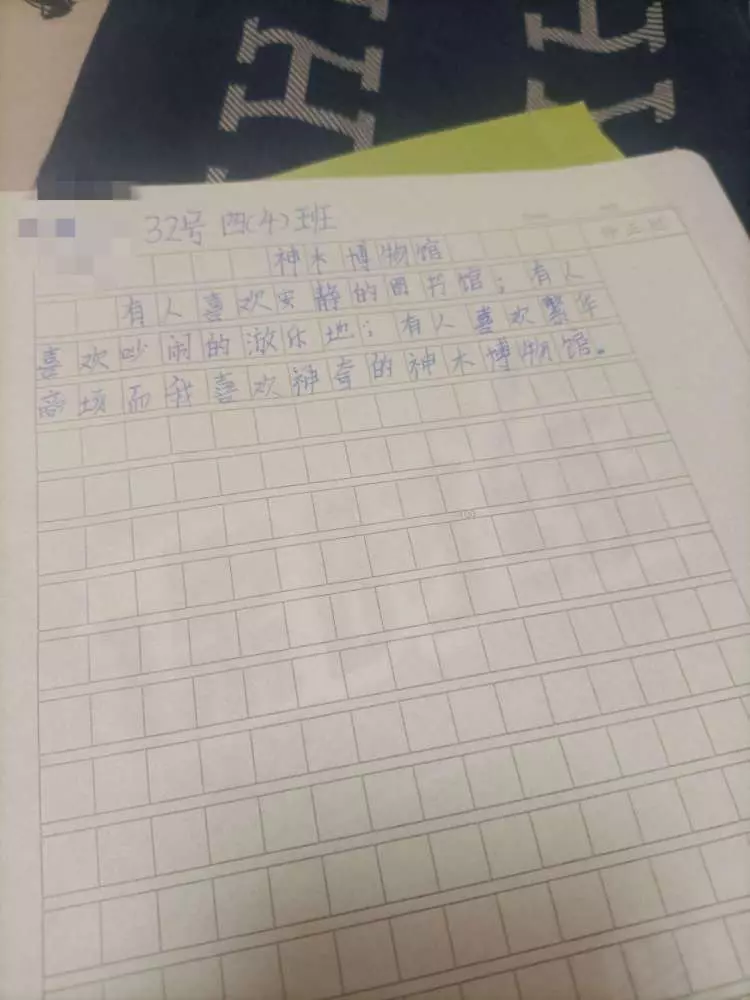 32号 四(4)班
神木博物馆
有人喜欢安静的图书馆；有人
喜欢吵闹的游乐地；有人喜欢繁华
商场而我喜欢神奇的神木博物馆。